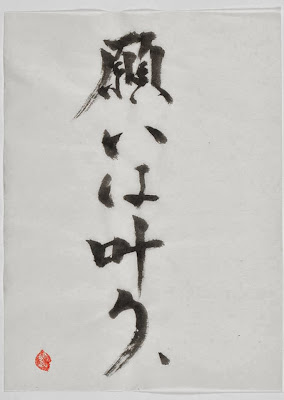 願いは叶う、